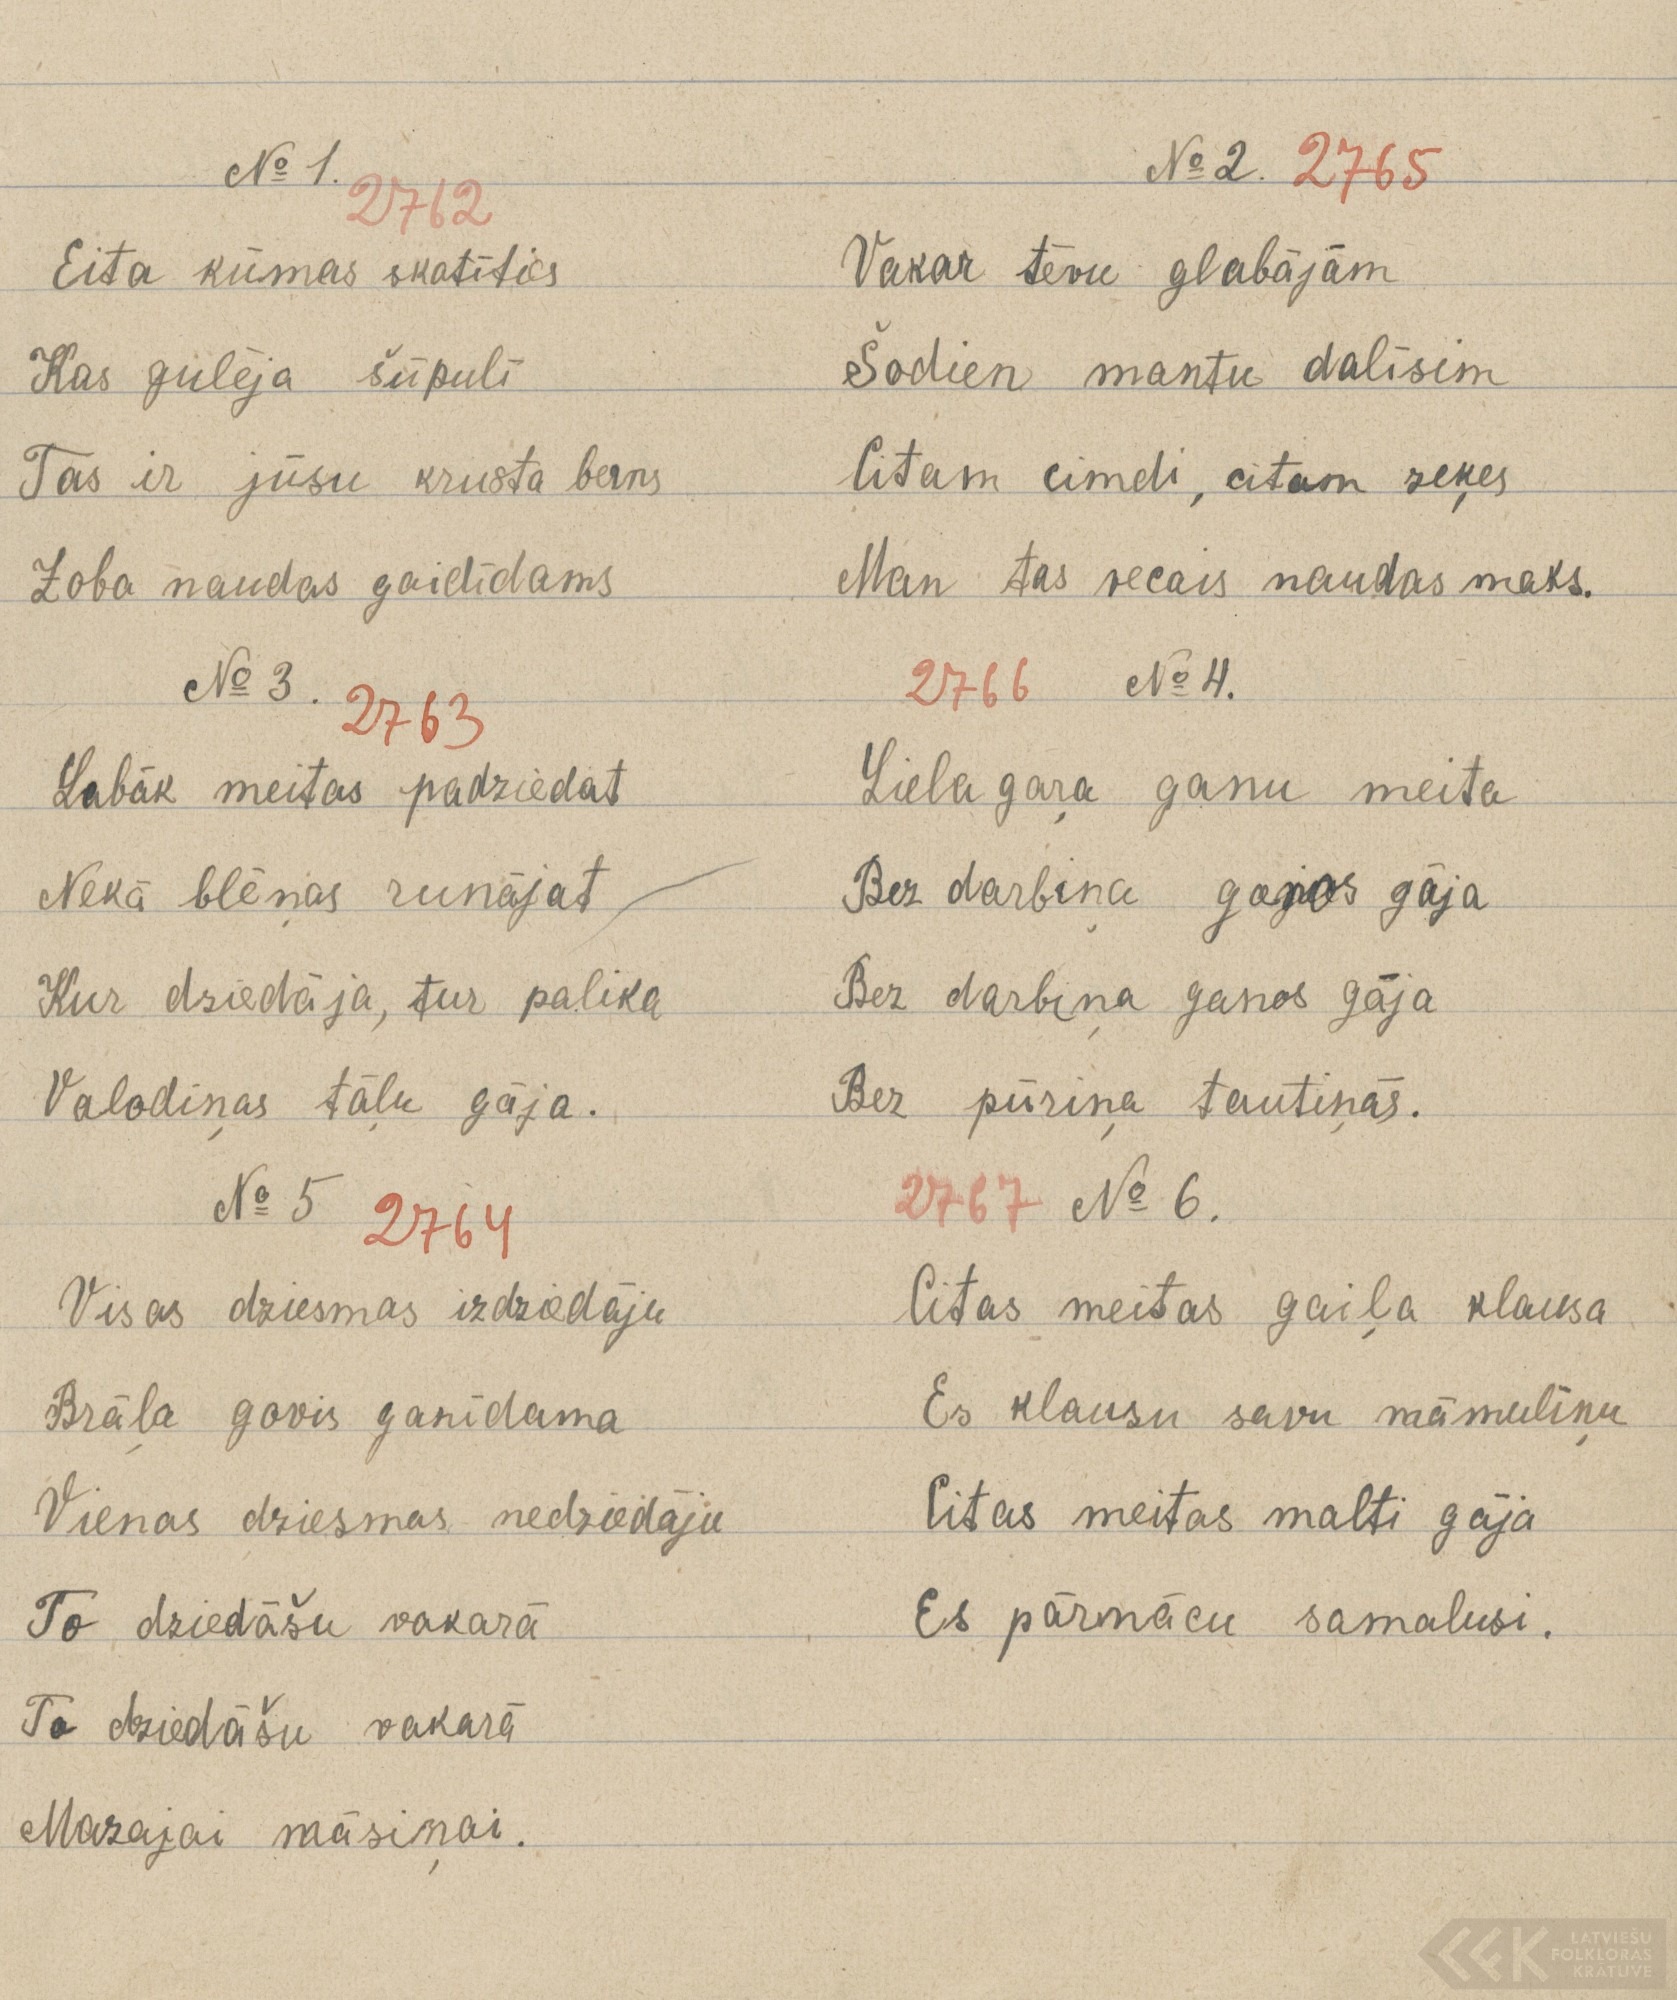 № 1.
2762
Eita kūmas skatīties
Kas gulēja šūpulī
Tas ir jūsu krusta berns
Zoba naudas gaidīdams
№ 3.
2763
Labāk meitas padziedat
Nekā blēņas runājat
Kur dziedāja, tur palika
Valodiņas tāļu gāja.
№ 5
2764
Visas dziesmas izdziedāju
Brāļa govis ganīdama
Vienas dziesmas nedziedāju
To dziedāšu vakarā
To dziedāšu vakarā
Mazajai māsiņai.
№ 2. 2765
Vakar tēvu glabājām
Šodien mantu dalīsim
Citam cimdi, citam zeķes
Man tas vecais naudas maks.
2766 № 4.
Liela gaŗa ganu meita
Bez darbiņa ganos gāja
Bez darbiņa ganos gāja
Bez pūriņa tautiņās.
2767 № 6.
Citas meitas gaiļa klausa
Es klausu savu māmuliņu
Citas meitas malti gāja
Es pārnācu samalusi.
LATVIEŠU
FOLKLORAS
KRĀTUVE